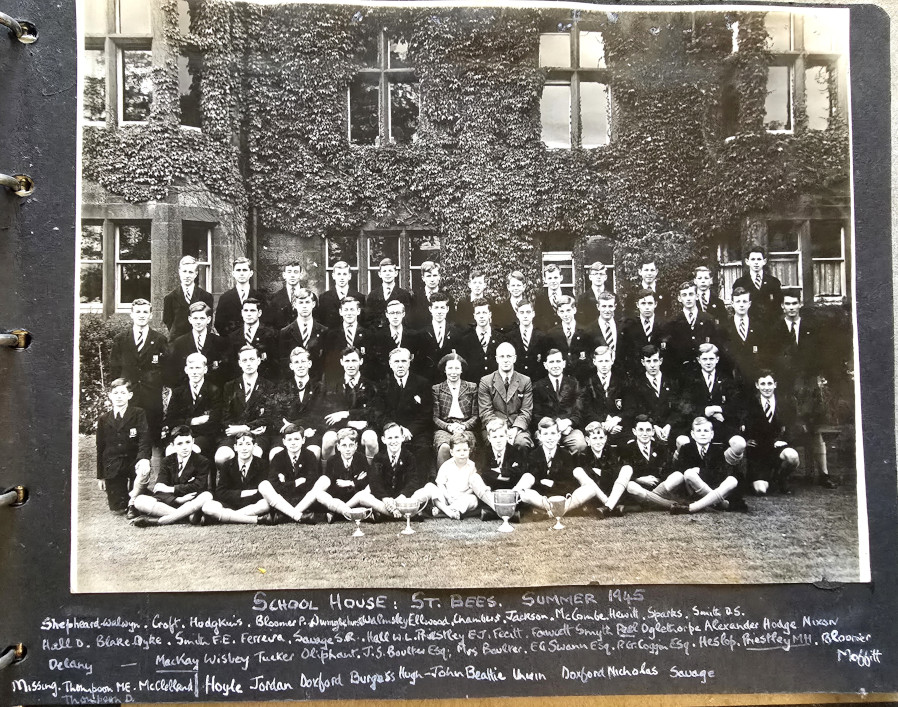 SCHOOL HOUSE: ST. BEES. SUMMER 1945
Shepheard-Walwyn. Croft. Hodgkins. Bloomer P. Walmsley Ellwood Chambers Jackson. McCombe Hewitt Sparks. Smith D.S.
Hall D. Blake. Dyke. Smith F.E. Ferreira. Savage S.R. Hall W.L. Priestley E.J. Fecitt. Fawcett Smyth Alexander Hodge Nixon
Delany — MacKay Wisbey Tucker Oliphant. J.S. Boulter Esq. Mrs Boulter. E.G. Swann Esq. R.G. Coggan Esq. Heslop. Priestley M.H. Bloomer
Moffitt
Missing. Thompson M.E. McClelland Hoyle Jordan Doxford Burgess Hugh-John Beattie Unwin Doxford Nicholas Savage
Thompson D.